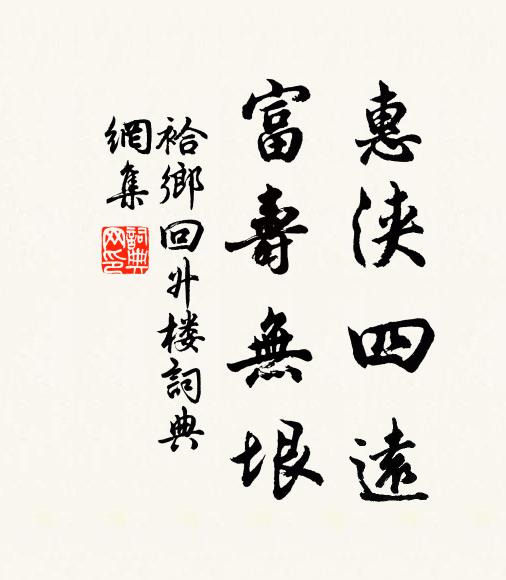 惠浹四遠
富壽無垠
袷鄉回廾楼詞典
網集
詞典
网印